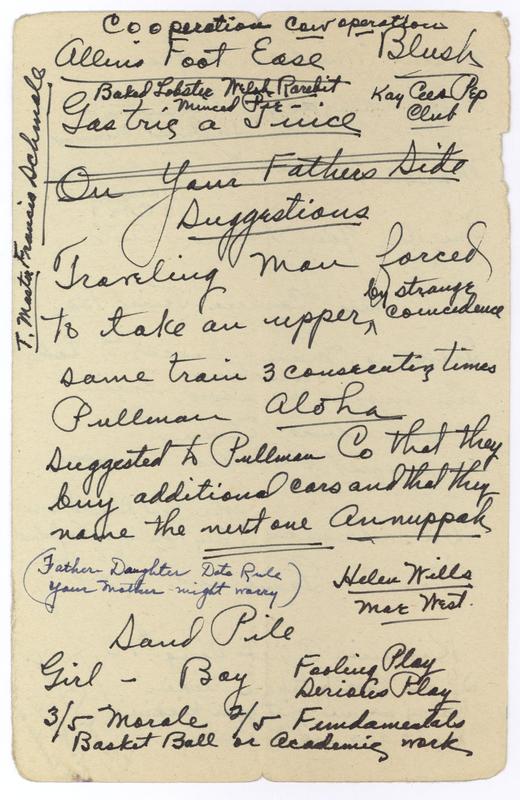 Cooperation Cow operation
Allen's Foot Ease Blush
Baked Lobster Welsh Rarebit
Minced Pie -
Kay Cees Pep
Club
Gastric a Juice
T. Master Francis Schmalz
On Your Fathers Side
Suggestions
Traveling Man forced
by strange
to take an upper ^ coincedence
same train 3 consecutive times
Pullman Aloha
suggested to Pullman Co that they
buy additional cars and that they
name the next one Annuppah
(Father Daughter Date Rule
Your Mother might worry)
Helen Wills
Mae West.
Sand Pile
Girl - Boy Fooling Play
Serious Play
3/5 Morale 2/5 Fundamentals
Basket Ball or Academic work